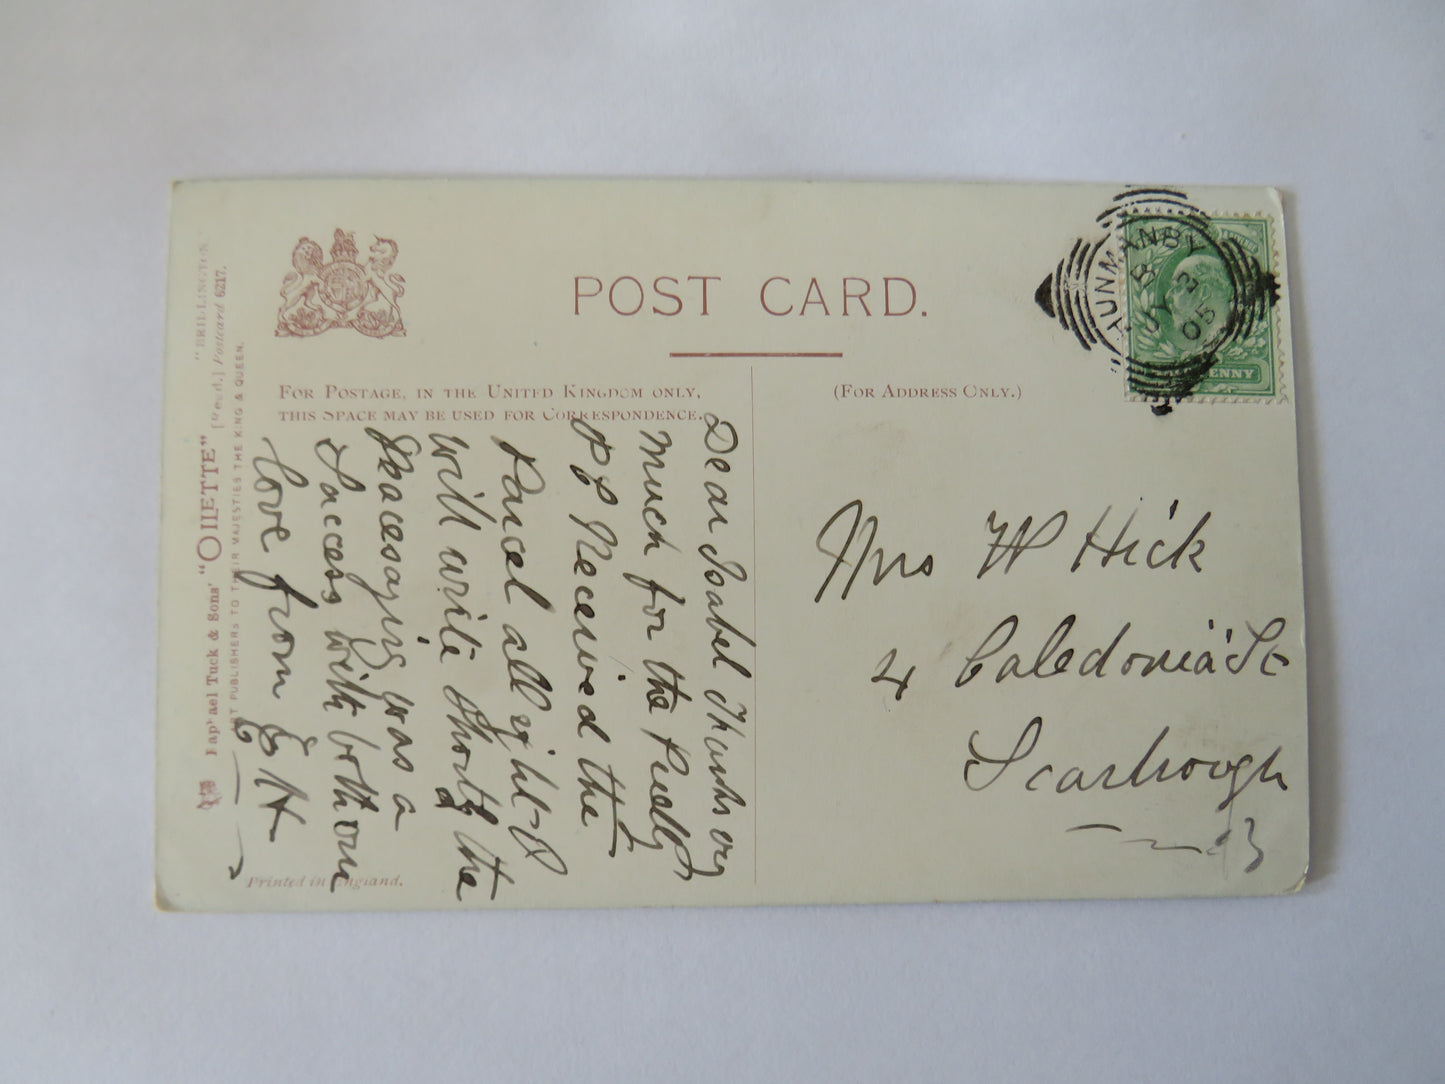 POST CARD.
FOR POSTAGE, IN THE UNITED KINGDOM ONLY,
THIS SPACE MAY BE USED FOR CORRESPONDENCE.
(FOR ADDRESS ONLY.)
"BRIDLINGTON."
Raphael Tuck & Sons' "OILETTE" [Regd.] Postcard 6217.
ART PUBLISHERS TO THEIR MAJESTIES THE KING & QUEEN.
Printed in England.
HUNMANBY
B
JY 2
05
HALFPENNY
Dear Isabel Thanks very
much for the Pretty
PP Received the
Parcel all right
will write Shortly the
was a
Success with both our
love from E H
Mrs W Hick
4 Caledonia St
Scarbrough